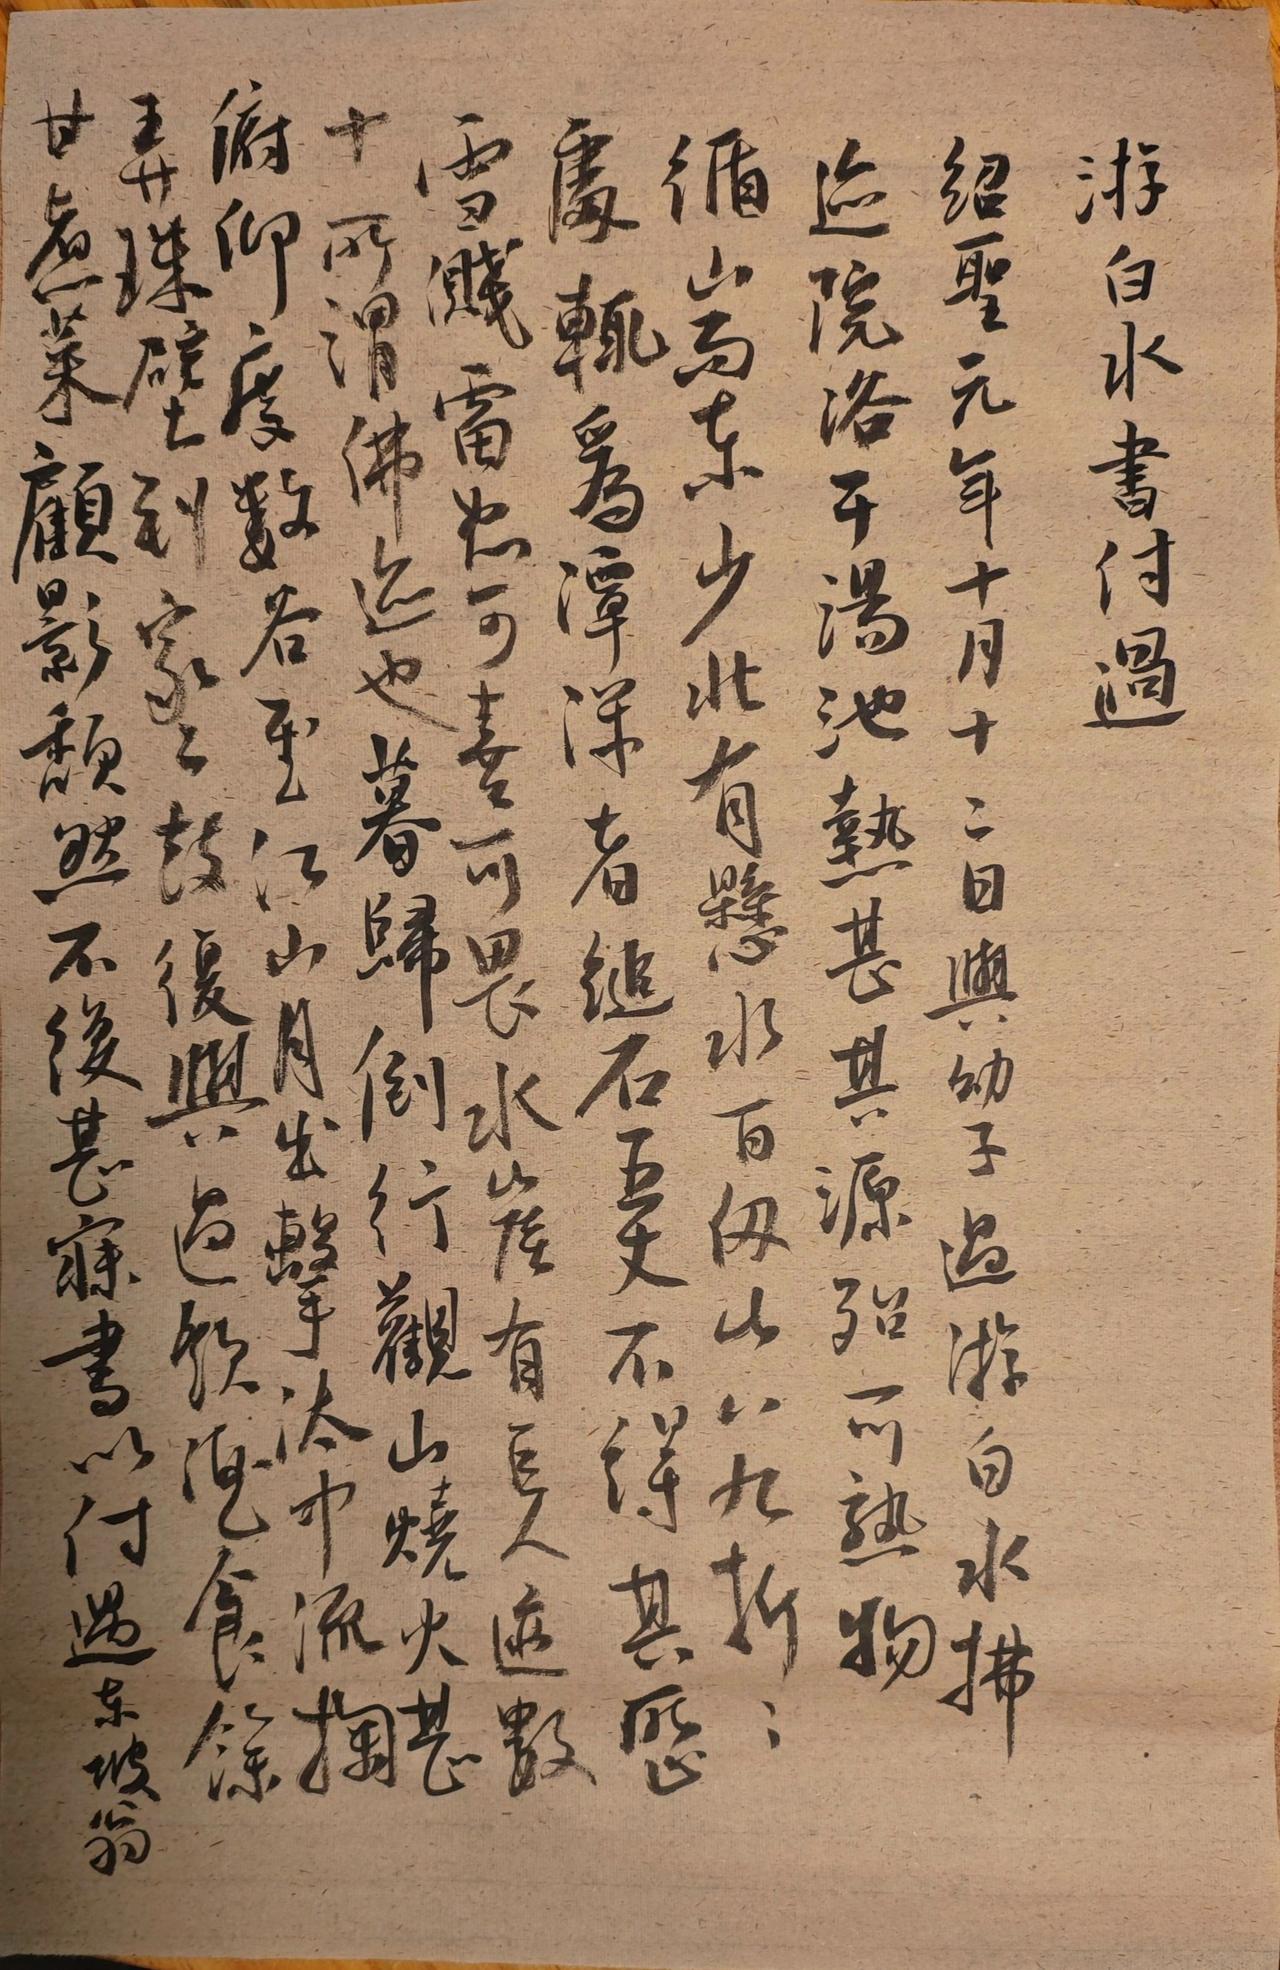 游白水書付過
紹聖元年十月十二日與幼子過游白水拂
迹院浴于湯池熱甚其源殆可熟物
循山而東少北有懸水百仞山八九折〻
處輒爲潭深者縋石五丈不得其所止
雪濺雷怒可喜可畏水崖有巨人迹數
十所謂佛迹也暮歸倒行觀山燒火甚
俯仰度數谷至江山月出擊汰中流掬
弄珠璧到家二鼓復與過飲酒食餘
甘煮菜顧影頹然不復甚寐書以付過東坡翁